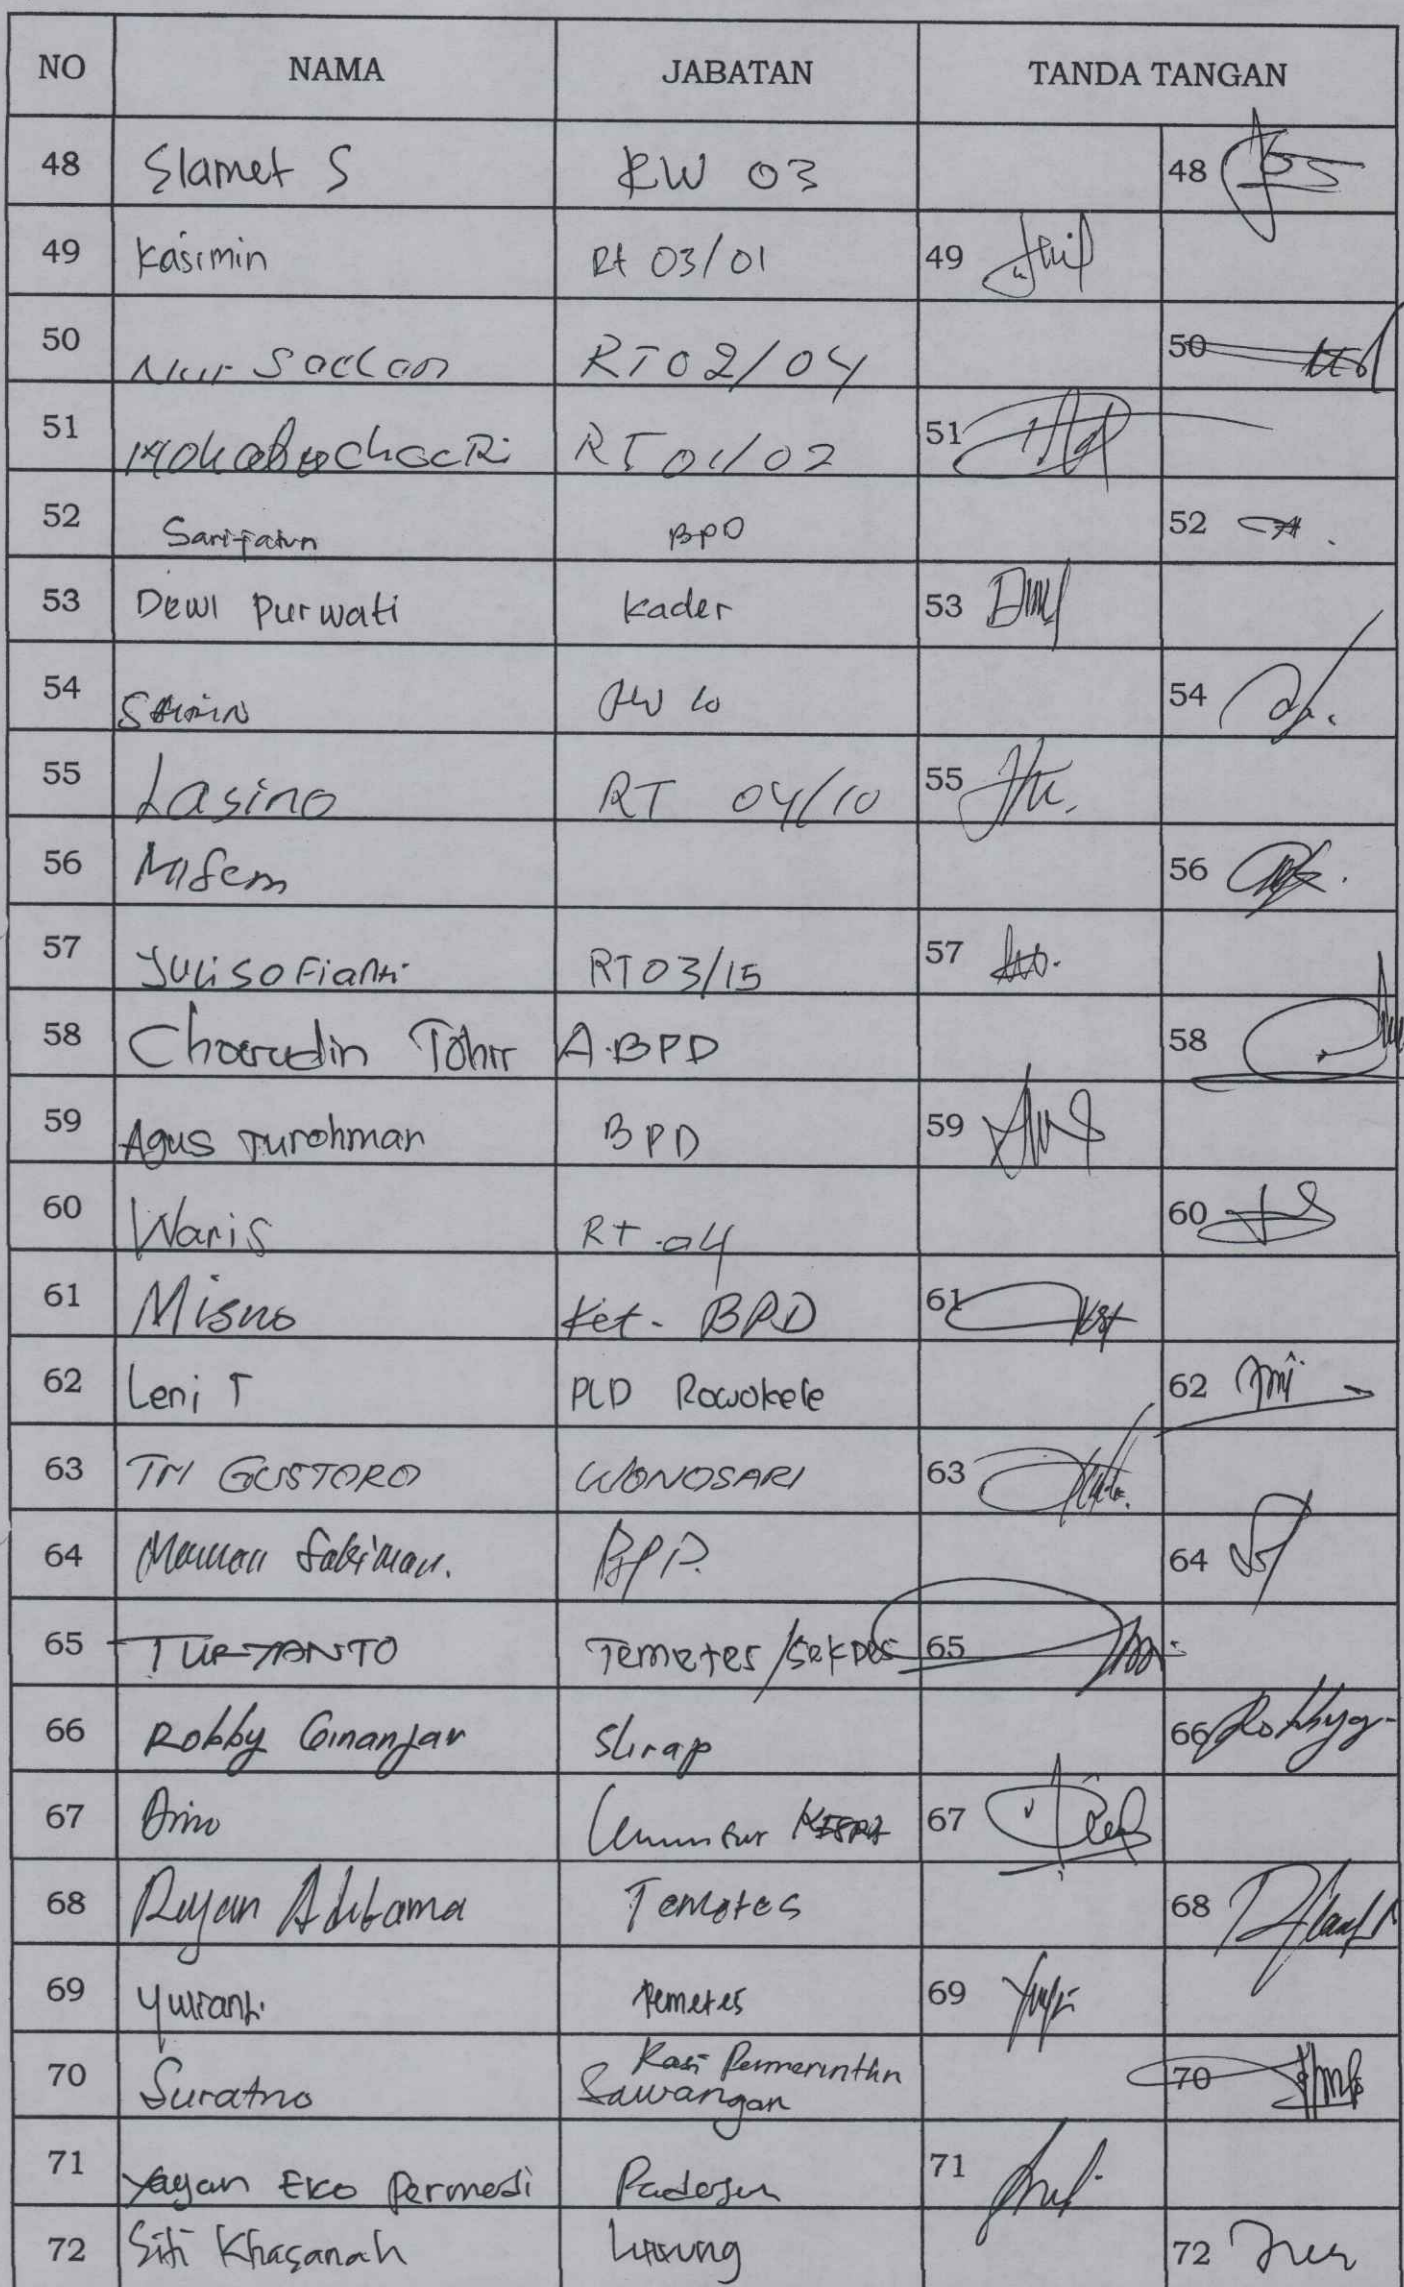 NO NAMA JABATAN TANDA TANGAN
48 Slamet S RW 03 48
49 Kasimin Rt 03/01 49
50 Nur Sodcan RT 02/04 50
51 RT 01/02 51
52 Sarifatun BPD 52
53 Dewi Purwati Kader 53
54 RW 10 54
55 Lasino RT 04/10 55
56 Misem 56
57 Yuli Sofianti RT 03/15 57
58 Choerudin Tohir A.BPD 58
59 Agus Turohman BPD 59
60 Waris Rt 04 60
61 Misno Ket. BPD 61
62 Leni T PLD Rowokele 62
63 TRI GUSTORO WONOSARI 63
64 Maman Sakiman. BPD. 64
65 TURYANTO Temetes/Sekdes 65
66 Robby Ginanjar Slirap 66 Robbyg
67 67
68 Reyan Aditama Temetes 68
69 Yulianti Temetes 69
70 Suratno Kasi Permerinthn
Sawangan 70
71 Yayan Eko Permedi 71
72 Siti Khasanah 72